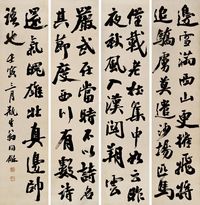 邊雪滿西山更催飛將
追驕虜莫遣沙場匹馬
載老杜集中如云昨
夜秋風入漢關朔雲
嚴武在當時不以詩
其節度西川有數詩
還氣魄雄壯真邊帥
語也 壬寅三月瓶生翁同龢